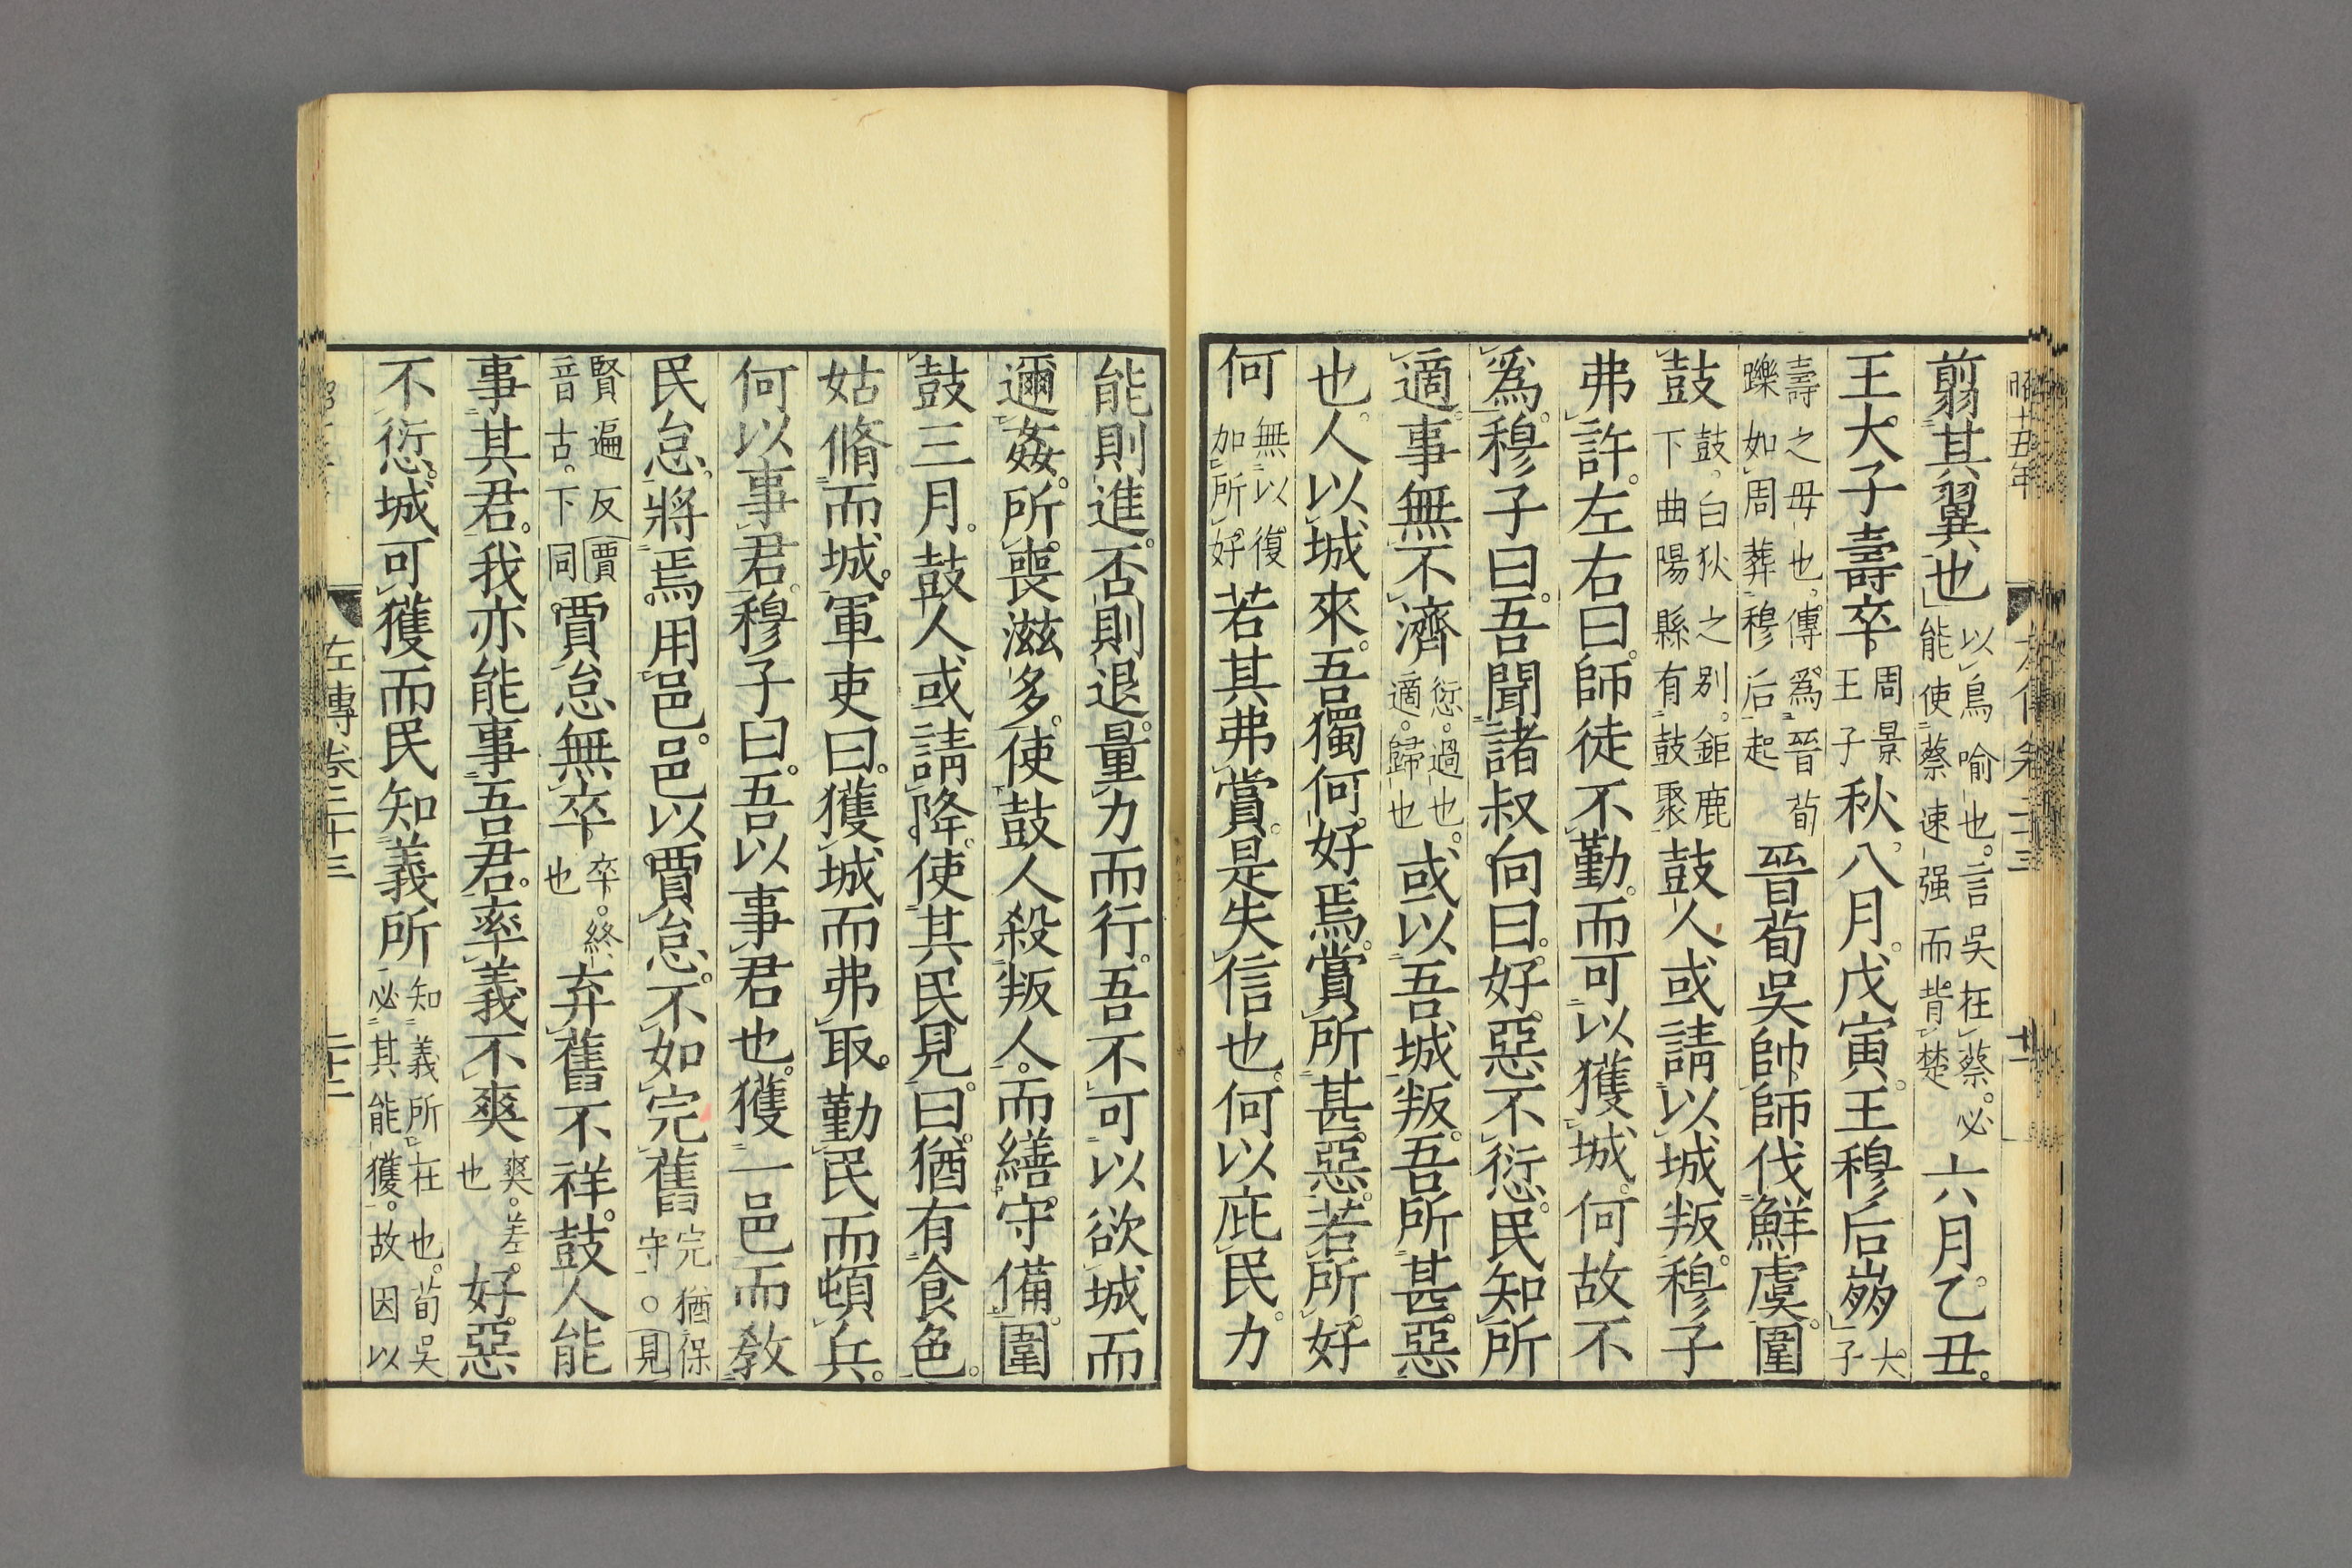 昭十五年
翦其翼也以鳥喻也。言吳在蔡。必能使蔡速强而背楚六月。乙丑。
王大子壽卒。周景王子秋。八月。戊寅。王穆后崩大子
壽之母也。傳爲晉荀躒如周葬穆后起晉荀吳帥師伐鮮虞。圍
鼓鼓。白狄之别。鉅鹿下曲陽縣有鼓聚鼓人或請以城叛。穆子
弗許。左右曰。師徒不勤。而可以獲城。何故不
爲。穆子曰。吾聞諸叔向曰。好惡不愆。民知所
適。事無不濟愆。過也。適。歸也或以吾城叛。吾所甚惡
也。人以城來。吾獨何好焉。賞所甚惡。若所好
何無以復加所好若其弗賞。是失信也。何以庇民。力
能則進。否則退。量力而行。吾不可以欲城而
邇姦。所喪滋多。使鼓人殺叛人。而繕守備。圍
鼓三月。鼓人或請降。使其民見。曰。猶有食色。
姑脩而城。軍吏曰。獲城而弗取。勤民而頓兵。
何以事君。穆子曰。吾以事君也。獲一邑而敎
民怠。將焉用邑。邑以賈怠。不如完舊完猶保守。○見
賢遍反賈音古。下同賈怠無卒卒。終也弃舊不祥。鼓人能
事其君。我亦能事吾君。率義不爽爽。差也好惡
不愆。城可獲而民知義所知義所在也。荀吳必其能獲。故因以
左傳卷二十三
二十二